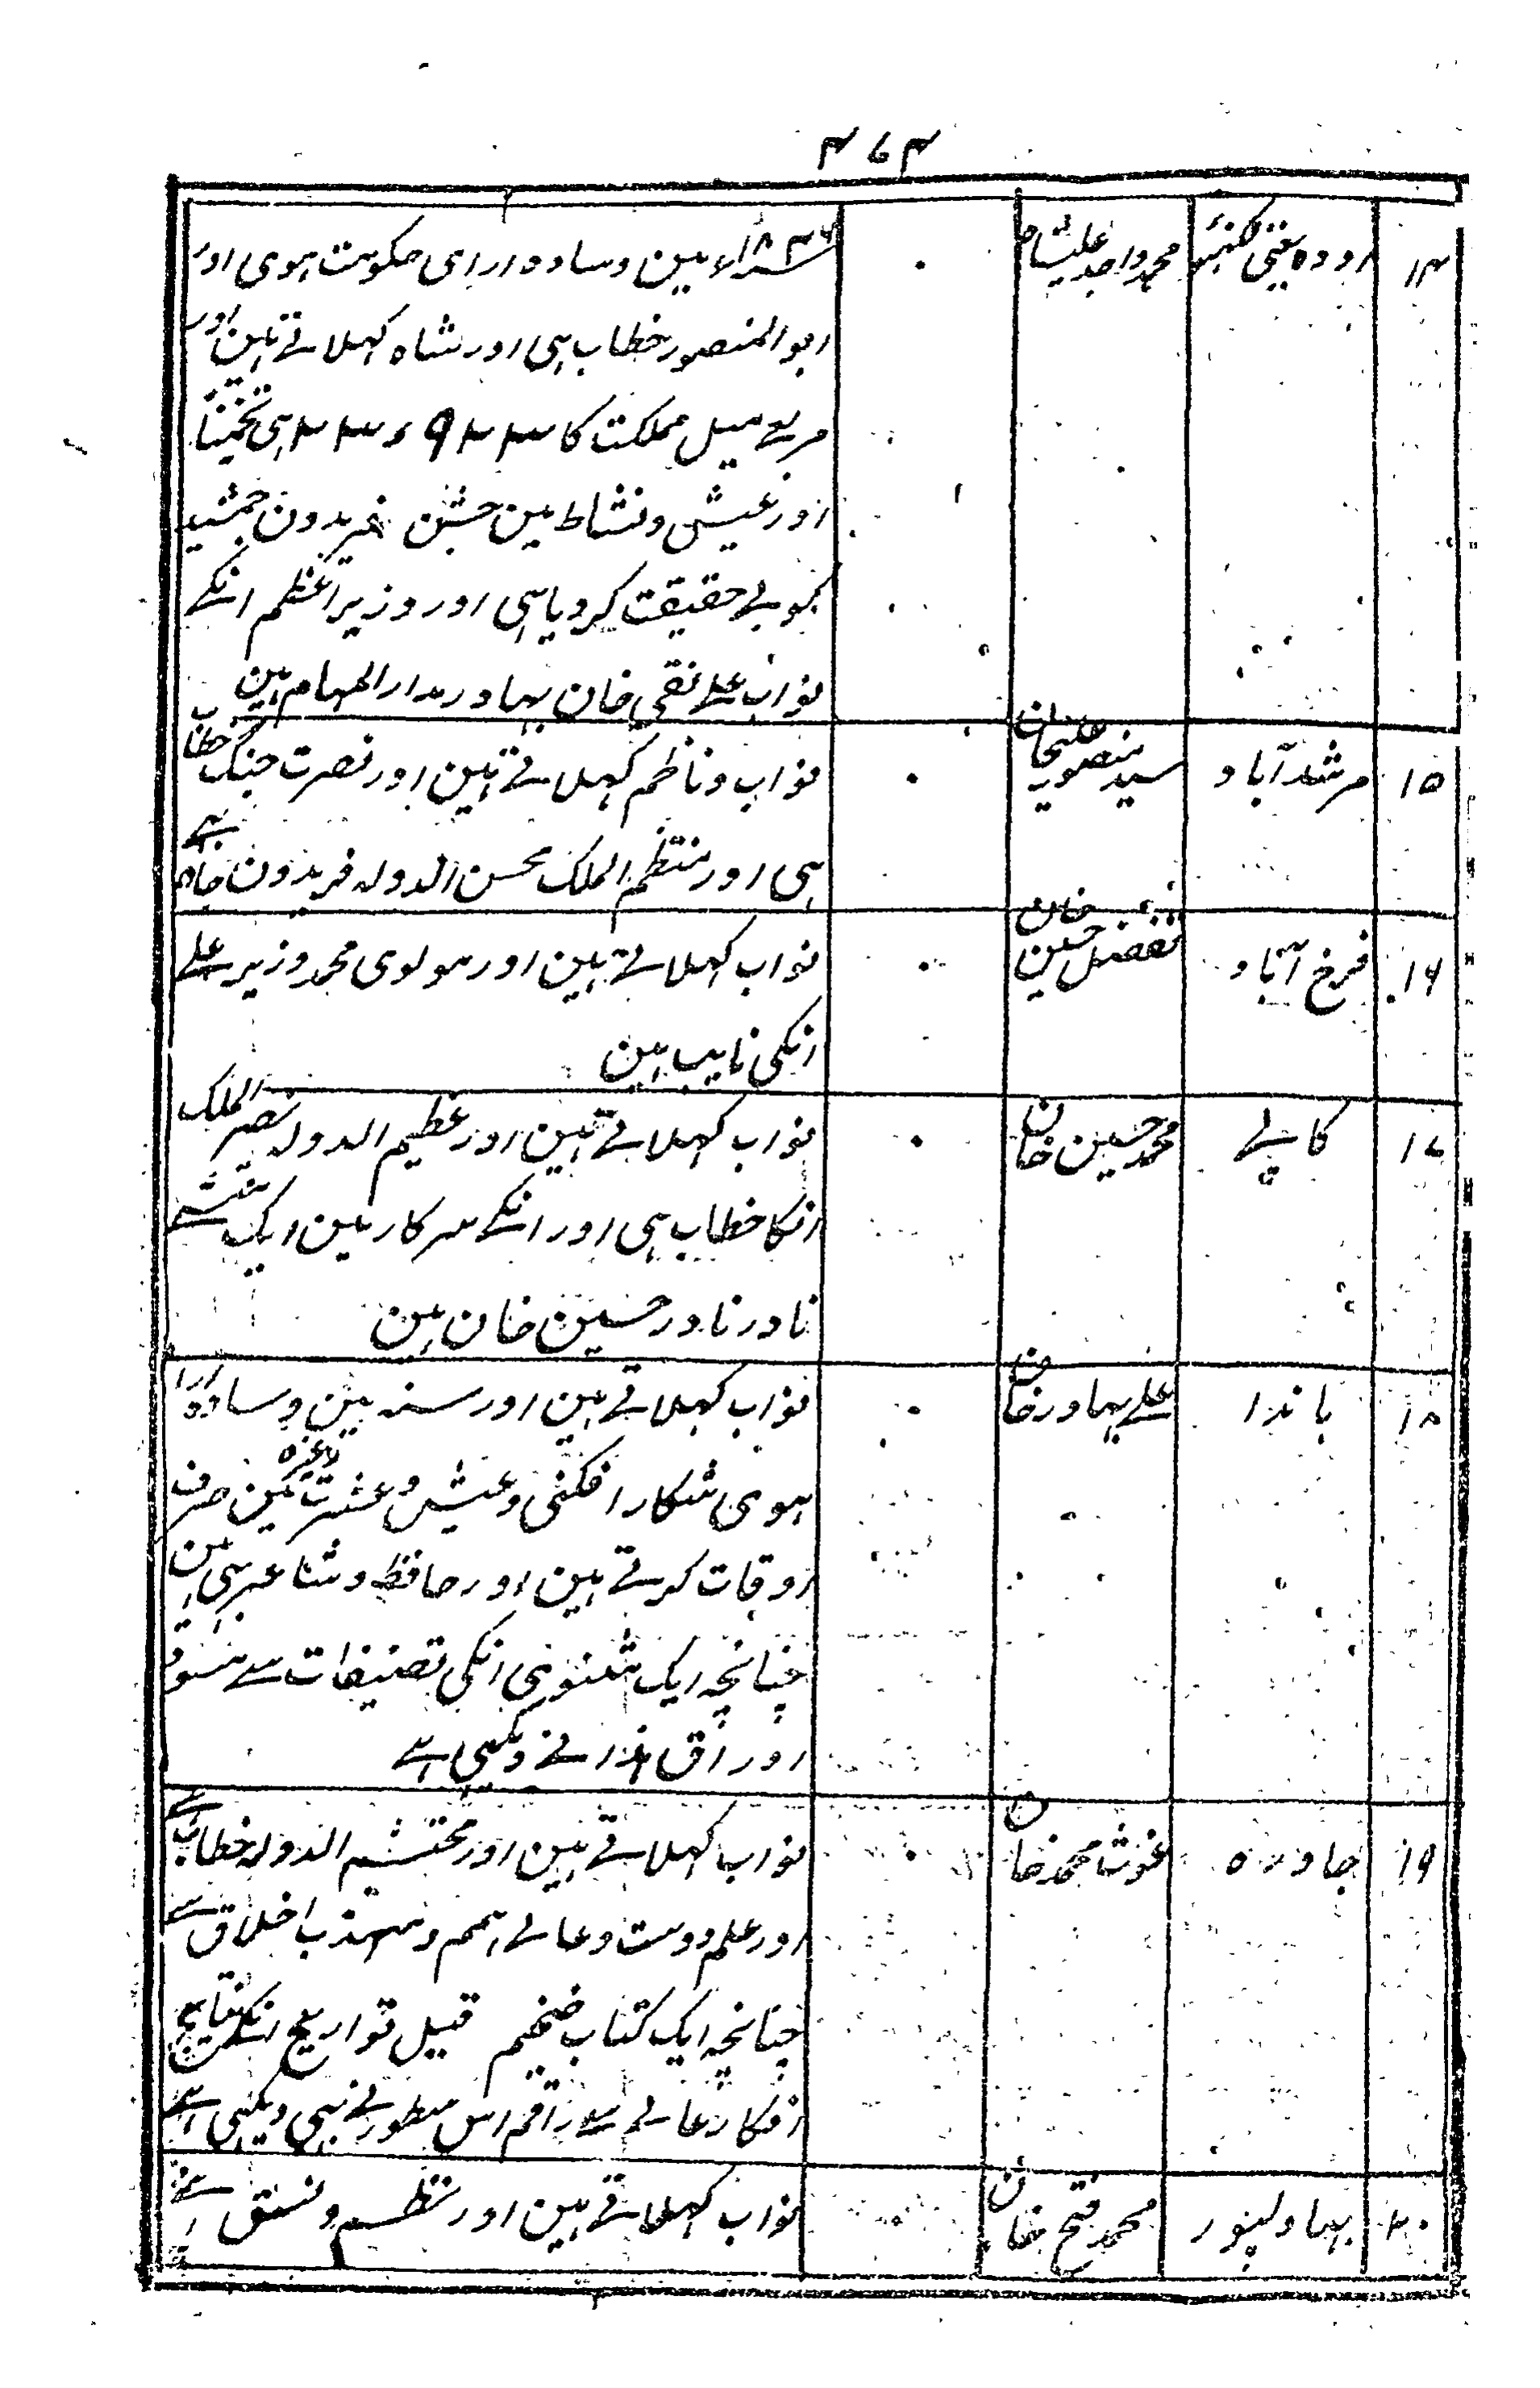 ۴۶۴
۱۴ اودہ یعنی لکھنؤ محمد واجد علیشاہ ۰ ۱۸۴۶ء مین وسادہ ارای حکومت ہوی اور
ابو المنصور خطاب ہی اور شاہ کہلاتے ہین اور
مربع میل مملکت کا ۲۳۹۲۳ ہی تخمیناً
اور عیش و نشاط مین جشن فریدون جمشید
کو بے حقیقت کر دیا ہی اور وزیر اعظم انکے
نواب علے نقی خان بہادر مدار المہام ہین
۱۵ مرشدآباد سید منصور علیخان ۰ نواب و ناظم کہلاتے ہین اور نصرت جنگ خطاب
ہی اور منتظم الملک محسن الدولہ فریدون جاہ ہے
۱۶ فرخ آباد تفضل حسین خان ۰ نواب کہلاتے ہین اور مولوی محمد وزیر علے
انکی نایب ہین
۱۷ کالپے محمد حسین خان ۰ نواب کہلاتے ہین اور عظیم الدولہ نصر الملک
انکا خطاب ہی اور انکے سرکار مین ایک منشے
نادر نادر حسین خان ہین
۱۸ باندا علے بہادر خان ۰ نواب کہلاتے ہین اور سنہ مین وسادہ ارا
ہوی شکار افکنی و عیش و عشرت وغیرہ مین صرف
اوقات کرتے ہین اور حافظ و شاعر ہی ہین
چنانچہ ایک مثنوی انکی تصنیفات سے
اوراق ہذا نے دیکھی ہے
۱۹ جاورہ غوث محمد خان ۰ نواب کہلاتے ہین اور محتشم الدولہ خطاب ہے
اور علم دوست و عالے ہمم و مہذب اخلاق ہے
چنانچہ ایک کتاب ضخیم قبیل تواریخ انکے نتایج
افکار عالے سے راقم اس سطور نے بہی دیکھی ہے
۲۰ بہاولپور محمد فتح خان نواب کہلاتے ہین اور نظم و نسق